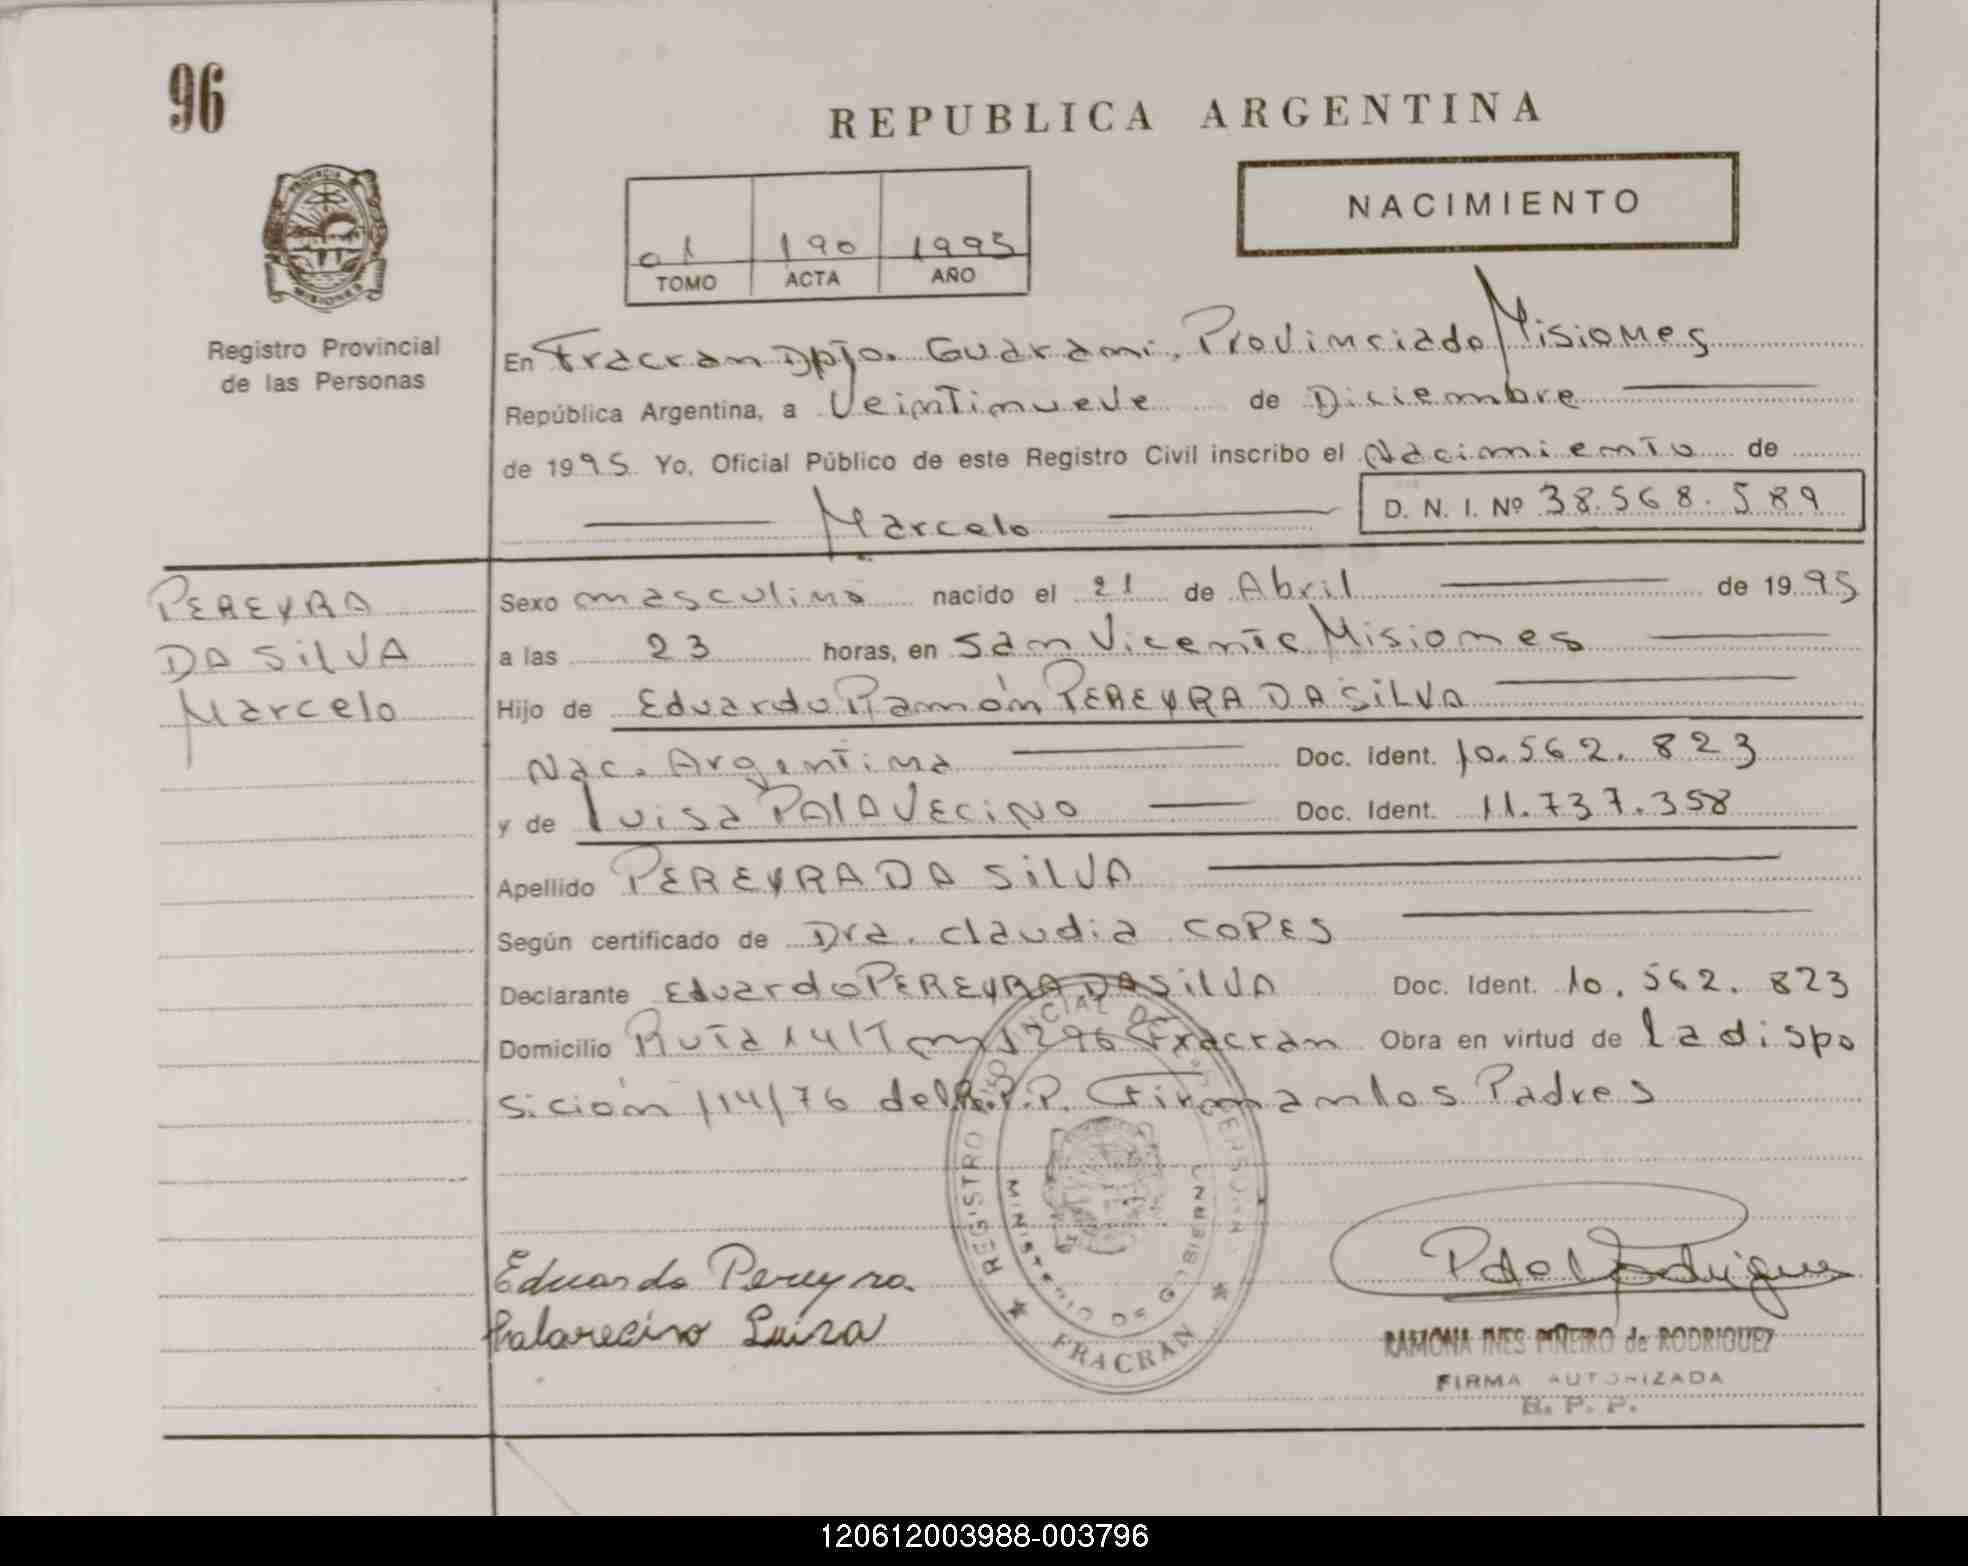 96
REPUBLICA ARGENTINA
PROVINCIA
MISIONES
Registro Provincial
de las Personas
NACIMIENTO
01 190 1995
TOMO ACTA AÑO
En Fracran Dpto. Guarani, Provincia de Misiones
República Argentina, a Veintinueve de Diciembre
de 1995 Yo, Oficial Público de este Registro Civil inscribo el Nacimiento de
Marcelo
D. N. I. Nº 38.568.589
PEREYRA
DA SILVA
Marcelo
Sexo masculino nacido el 21 de Abril de 1995
a las 23 horas, en San Vicente Misiones
Hijo de Eduardo Ramón PEREYRA DA SILVA
Nac. Argentina Doc. Ident. 10.562.823
y de Luisa PALAVECINO Doc. Ident. 11.737.358
Apellido PEREYRA DA SILVA
Según certificado de Dra. Claudia COPES
Declarante Eduardo PEREYRA DA SILVA Doc. Ident. 10.562.823
Domicilio Ruta 14 Km 1296 Fracran Obra en virtud de la dispo
sición 114/76 del R.P.P. Firman los Padres
REGISTRO PROVINCIAL DE LAS PERSONAS
MINISTERIO DE GOBIERNO
FRACRAN
Eduardo Pereyra.
Palavecino Luisa
P de Rodrigues
RAMONA INES PIÑEIRO de RODRIGUEZ
FIRMA AUTORIZADA
R. P. P.
120612003988-003796